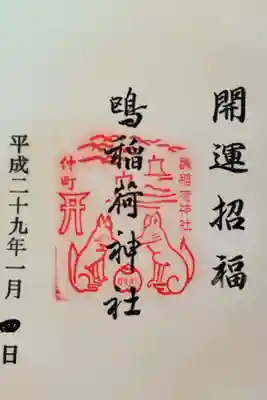 開運招福
鴎稲荷神社
鴎稲荷神社
仲町
平成二十九年一月四日